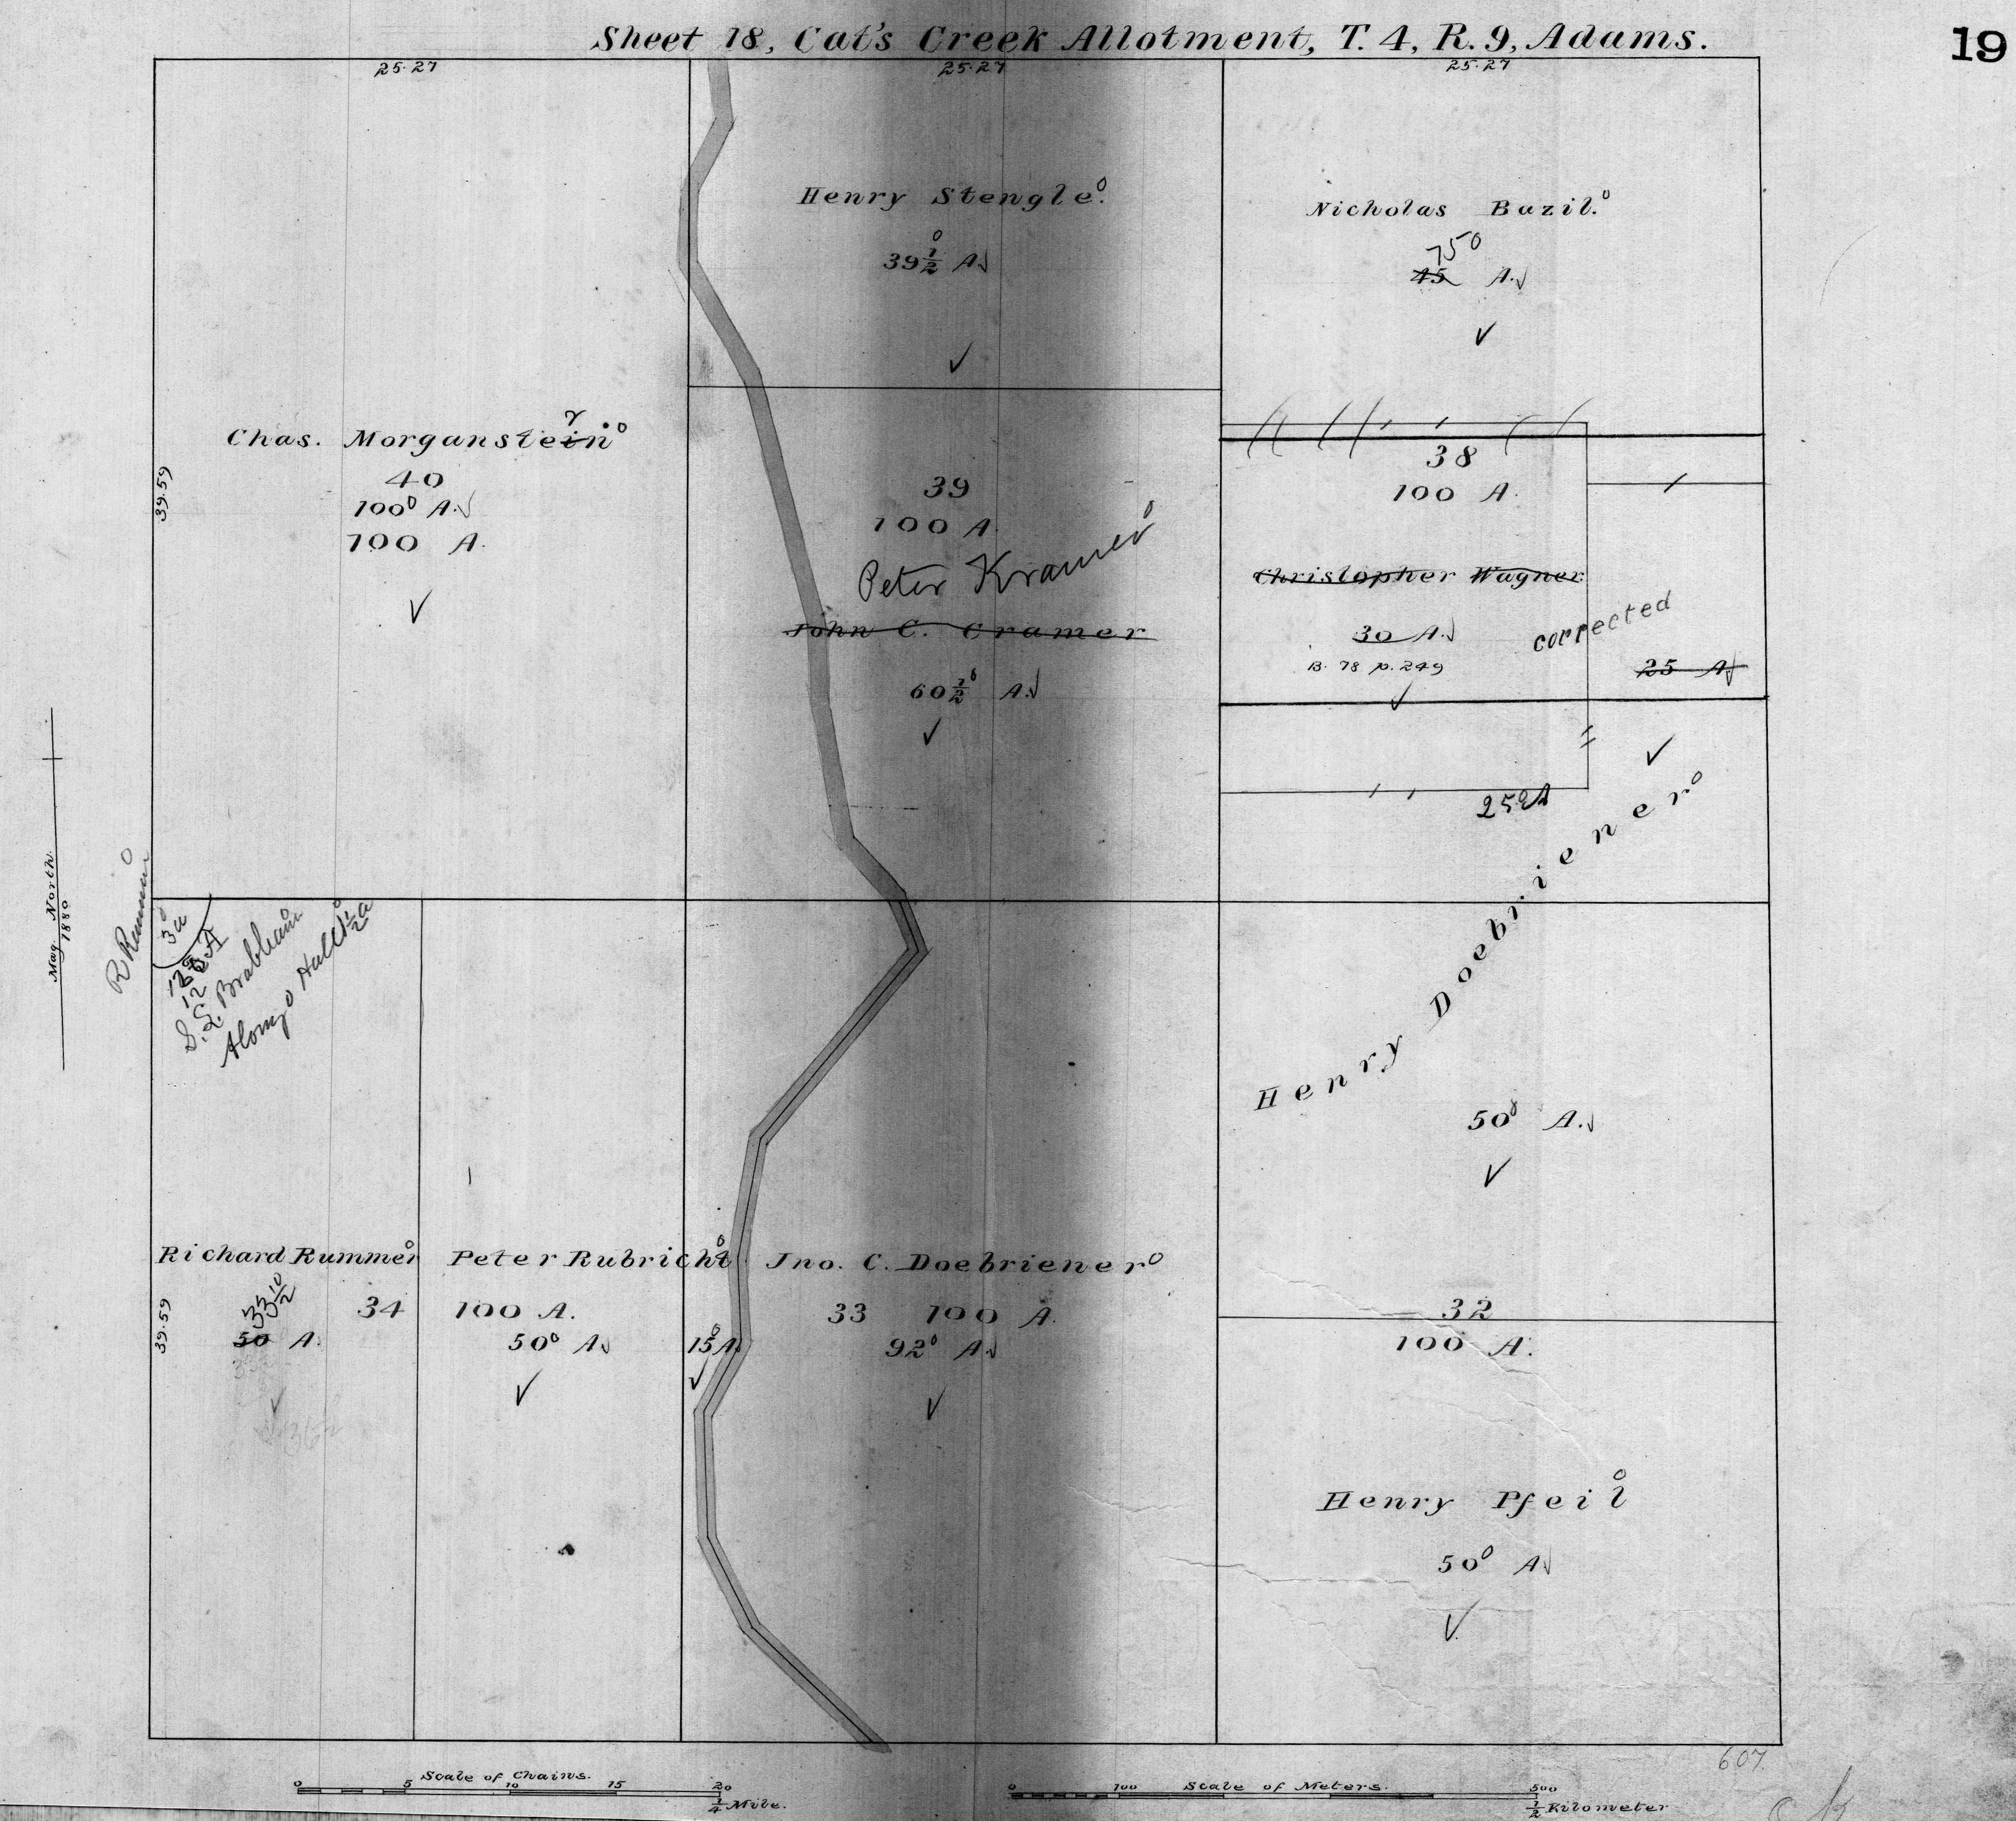 Sheet 18, Cat's Creek Allotment, T. 4, R. 9, Adams.
19
25.27
25.27
25.27
Henry Stengle.
39 1/2 A.
Nicholas Bazil.
75
45 A.
Chas. Morganstein
40
100 A.
100 A.
39.59
39
100 A
Peter Kramer
John C. Cramer
60 1/2 A.
38
100 A.
Christopher Wagner
30 A.
B. 78 p. 249
corrected
25 A
25 A
Henry Doebriener
50 A.
Mag. North.
1880
R Rummer
3 a
12
S. L. Brabham
Alonzo Hall 1/2 a
Richard Rummer
33 1/2
50 A.
34
39.59
Peter Rubricht
100 A.
50 A
15 A
Jno. C. Doebriener
33 100 A.
92 A
32
100 A.
Henry Pfeil
50 A
607
Scale of Chains.
0 5 10 15 20
1/4 Mile.
Scale of Meters.
0 100 500
1/2 Kilometer